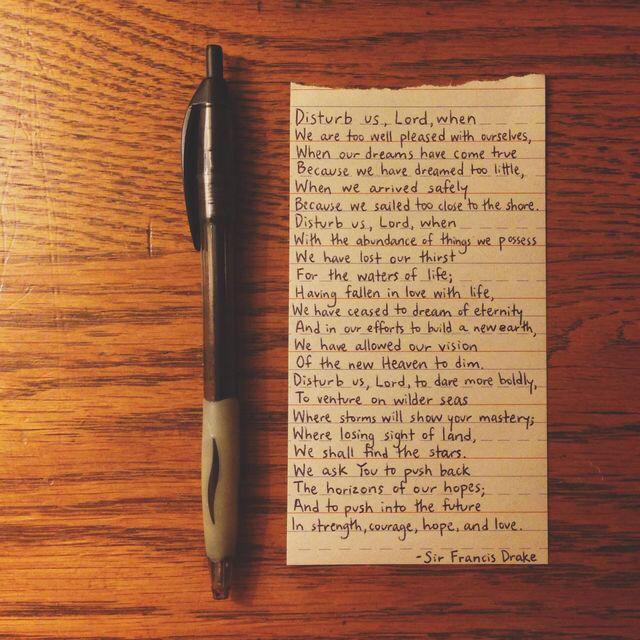 Disturb us, Lord, when
We are too well pleased with ourselves,
When our dreams have come true
Because we have dreamed too little,
When we arrived safely
Because we sailed too close to the shore.
Disturb us, Lord, when
With the abundance of things we possess
We have lost our thirst
For the waters of life;
Having fallen in love with life,
We have ceased to dream of eternity
And in our efforts to build a new earth,
We have allowed our vision
Of the new Heaven to dim.
Disturb us, Lord, to dare more boldly,
To venture on wilder seas
Where storms will show your mastery;
Where losing sight of land,
We shall find the stars.
We ask You to push back
The horizons of our hopes;
And to push into the future
In strength, courage, hope, and love.
-Sir Francis Drake